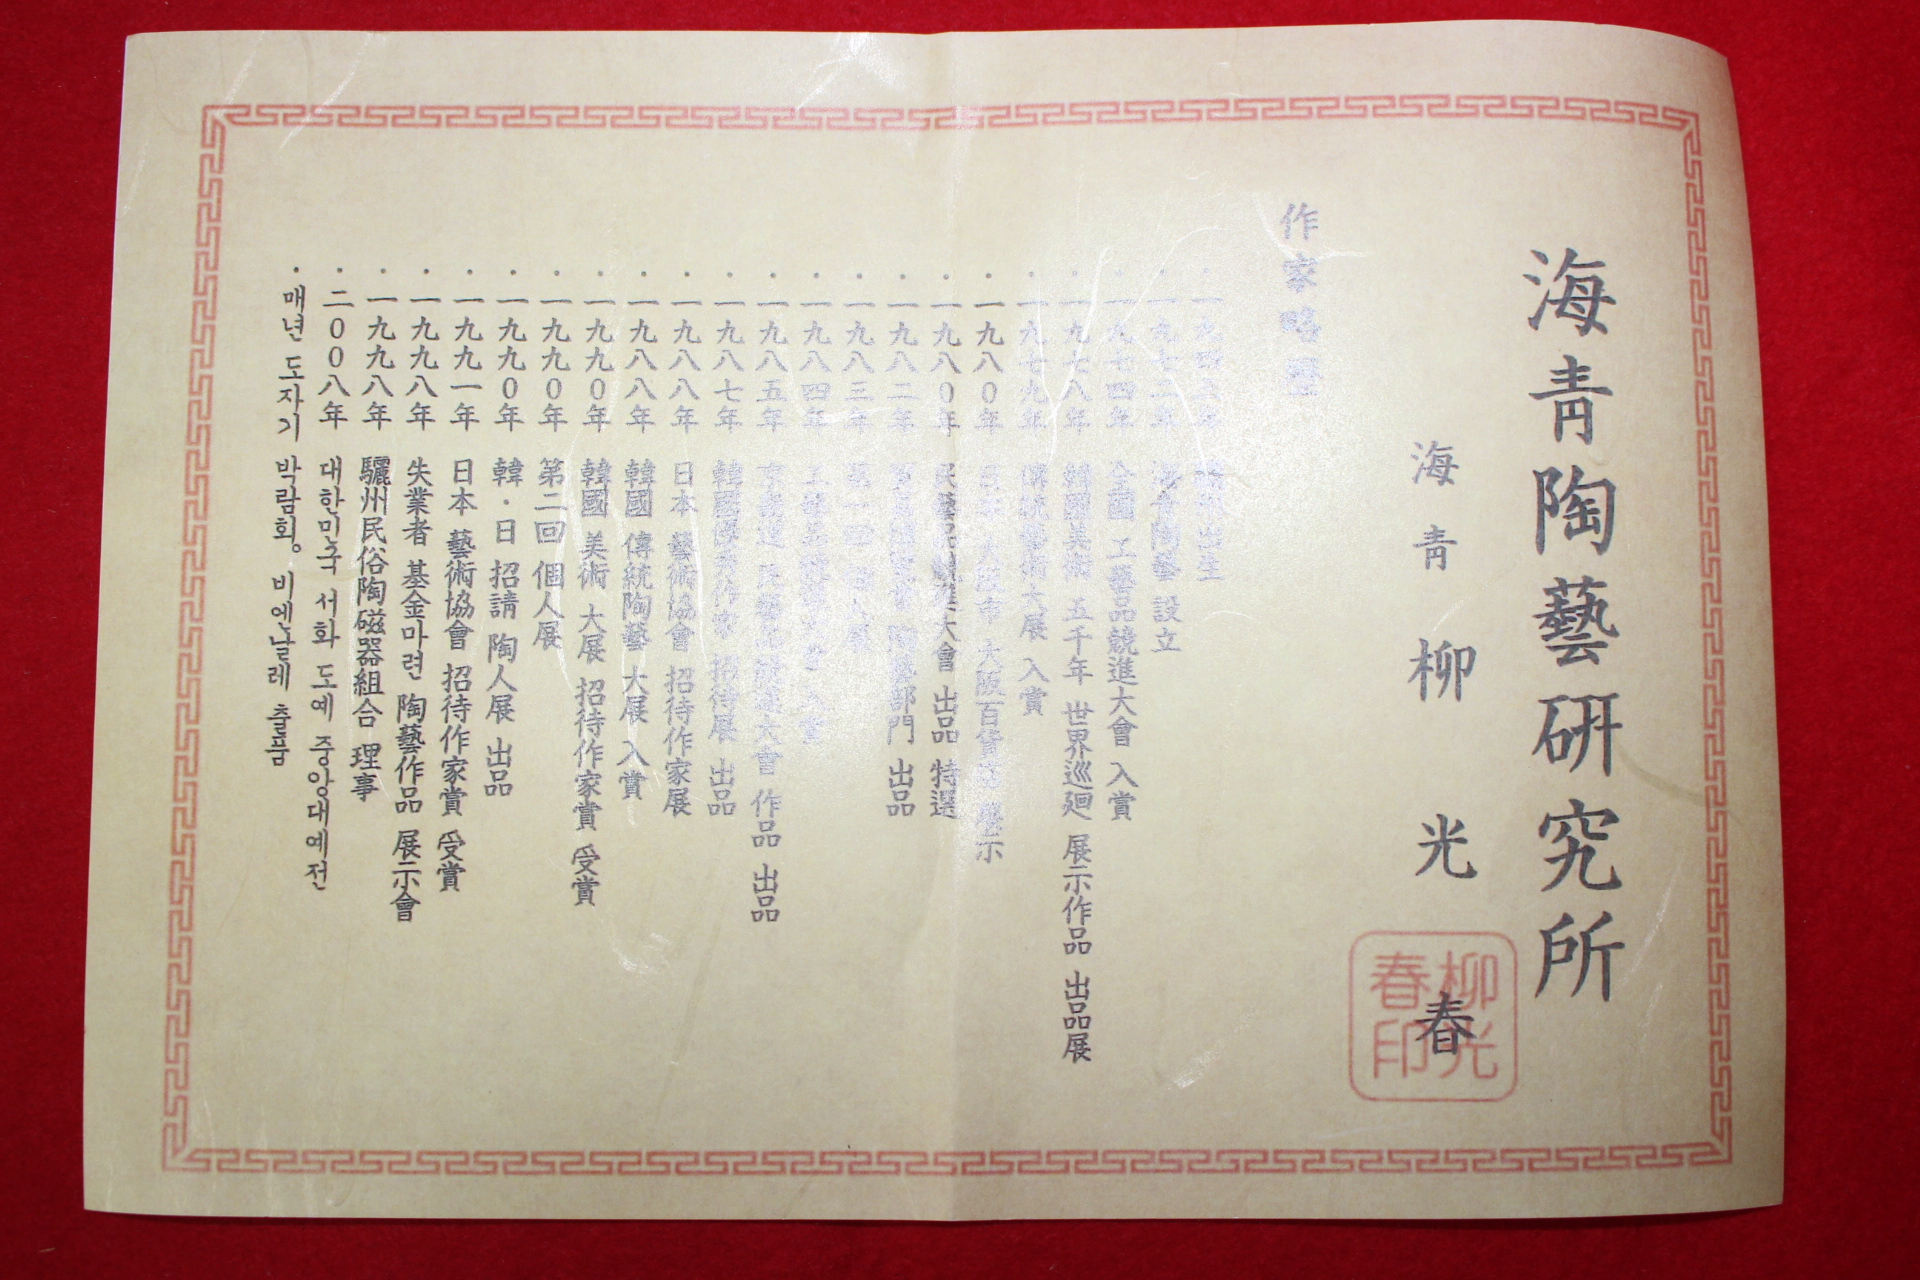 海青陶藝硏究所
海靑 柳光春
柳光春印
作家略歷
·一九四二年 出生
·一九七三年 海靑陶藝 設立
·一九七四年 全國 工藝品競進大會 入賞
·一九七八年 韓國美術 五千年 世界巡廻 展示作品 出品展
·一九七九年 傳統藝術大展 入賞
·一九八〇年 大阪市 大阪百貨店 展示
·一九八〇年 民藝品競進大會 出品 特選
·一九八二年 陶藝部門 出品
·一九八三年 第一回 個人展
·一九八四年 入賞
·一九八五年 京畿道 民藝品競進大會 作品 出品
·一九八七年 韓國優秀作家 招待展 出品
·一九八八年 日本 藝術協會 招待作家展
·一九八八年 韓國 傳統陶藝 大展 入賞
·一九九〇年 韓國 美術 大展 招待作家賞 受賞
·一九九〇年 第二回 個人展
·一九九〇年 韓·日 招請 陶人展 出品
·一九九一年 日本 藝術協會 招待作家賞 受賞
·一九九八年 失業者 基金마련 陶藝作品 展示會
·一九九八年 驪州民俗陶磁器組合 理事
·二〇〇八年 대한민국 서화 도예 중앙대예전
·매년 도자기 박람회。비엔날레 출품